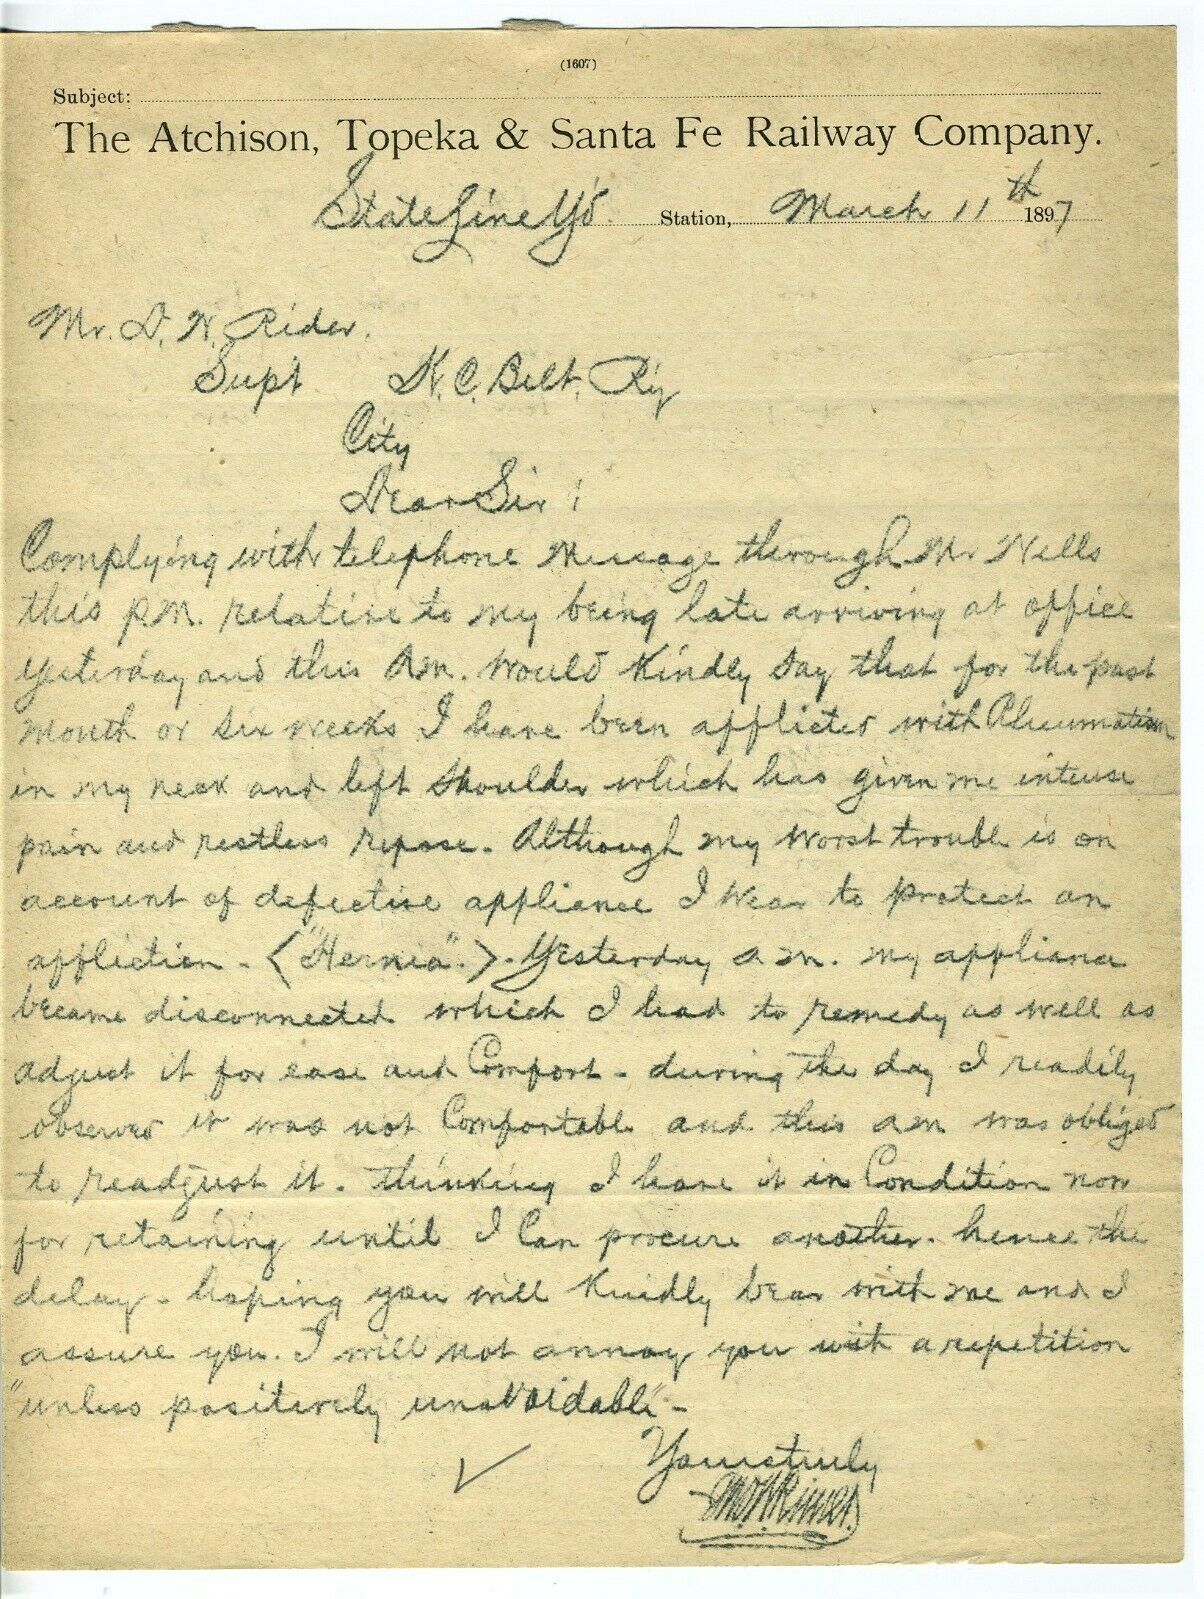 (1607)
Subject:
The Atchison, Topeka & Santa Fe Railway Company.
State Line Yd. Station, March 11th 1897
Mr. D. W. Rider.
Supt K. C. Belt. Ry
City
Dear Sir:
Complying with telephone message through Mr Wells
this P.M. relative to my being late arriving at office
yesterday and this Am. would kindly say that for the past
month or six weeks I have been afflicted with Rheumatism
in my neck and left shoulder which has given me intense
pain and restless repose. Although my worst trouble is on
account of defective appliance I wear to protect an
affliction - ("Hernia".). Yesterday a m. my appliance
became disconnected which I had to remedy as well as
adjust it for ease and Comfort - during the day I readily
observed it was not Comfortable and this am was obliged
to readjust it. thinking I have it in Condition now
for retaining until I Can procure another. hence the
delay - hoping you will kindly bear with me and I
assure you. I will not annoy you with a repetition
"unless positively unavoidable" -
Yours truly